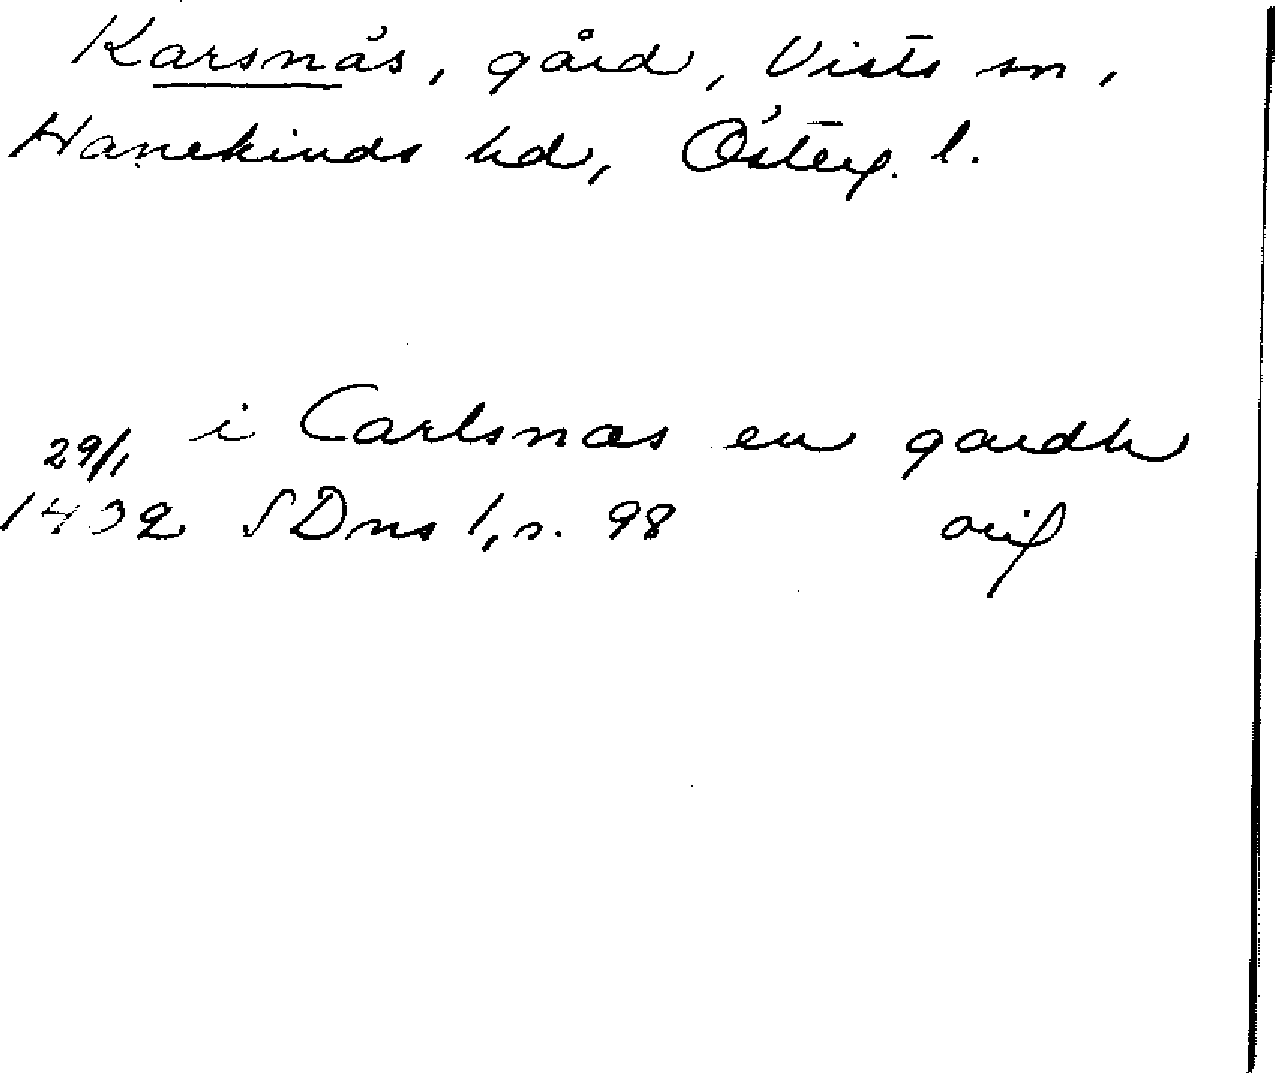 Karsnäs, gård, Vists sn,
Hanekinds hd, Österg. l.
29/1 i Carlsnæs en gardh
14 2 SDns 1, s. 98 orig